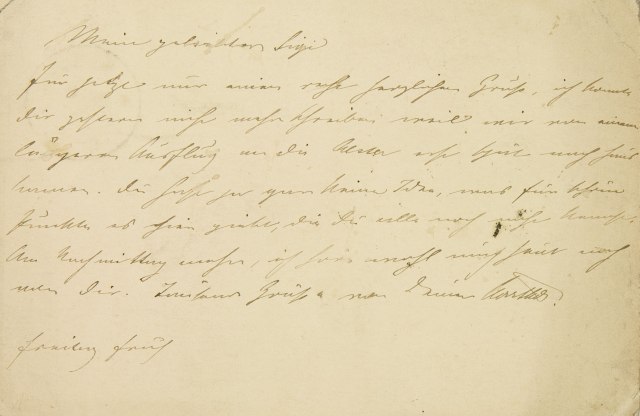 Mein geliebter Sigi
Für jetzt nur einen recht herzlichen Gruß, ich konnte
Dir gestern nicht mehr schreiben weil wir von einem
längeren Ausflug an die Alster erst spät nach Haus
kamen. Du hast ja gar keine Idee, was für schöne
Punkte es hier giebt, die Du alle noch nicht kennst.
Am Nachmittag mehr, ich höre wohl auch heut noch
von Dir. Tausend Grüße von Deiner
Freitag früh